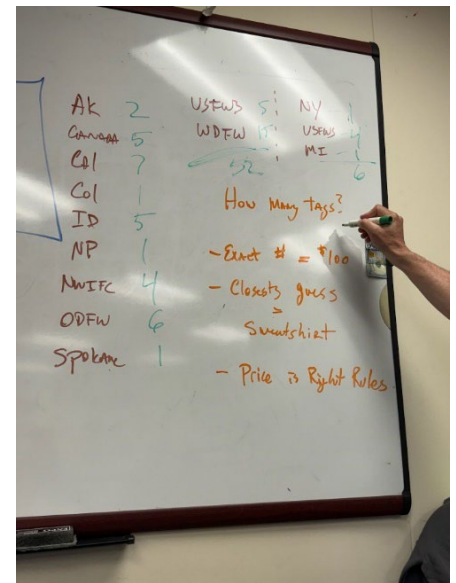 AK 2
CANADA 5
CAL 7
Col 1
ID 5
NP 1
NWIFC 4
ODFW 6
SPOKANE 1
USFWS 5
WDFW 15
52
NY 1
USFWS 4
MI 1
6
How Many Tags?
- Exact # = $100
- Closests guess
>
Sweatshirt
- Price is Right Rules